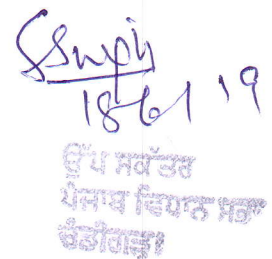 SSingh
18/6/19
ਉੱਪ ਸਕੱਤਰ
ਪੰਜਾਬ ਵਿਧਾਨ ਸਭਾ
ਚੰਡੀਗੜ੍ਹ।